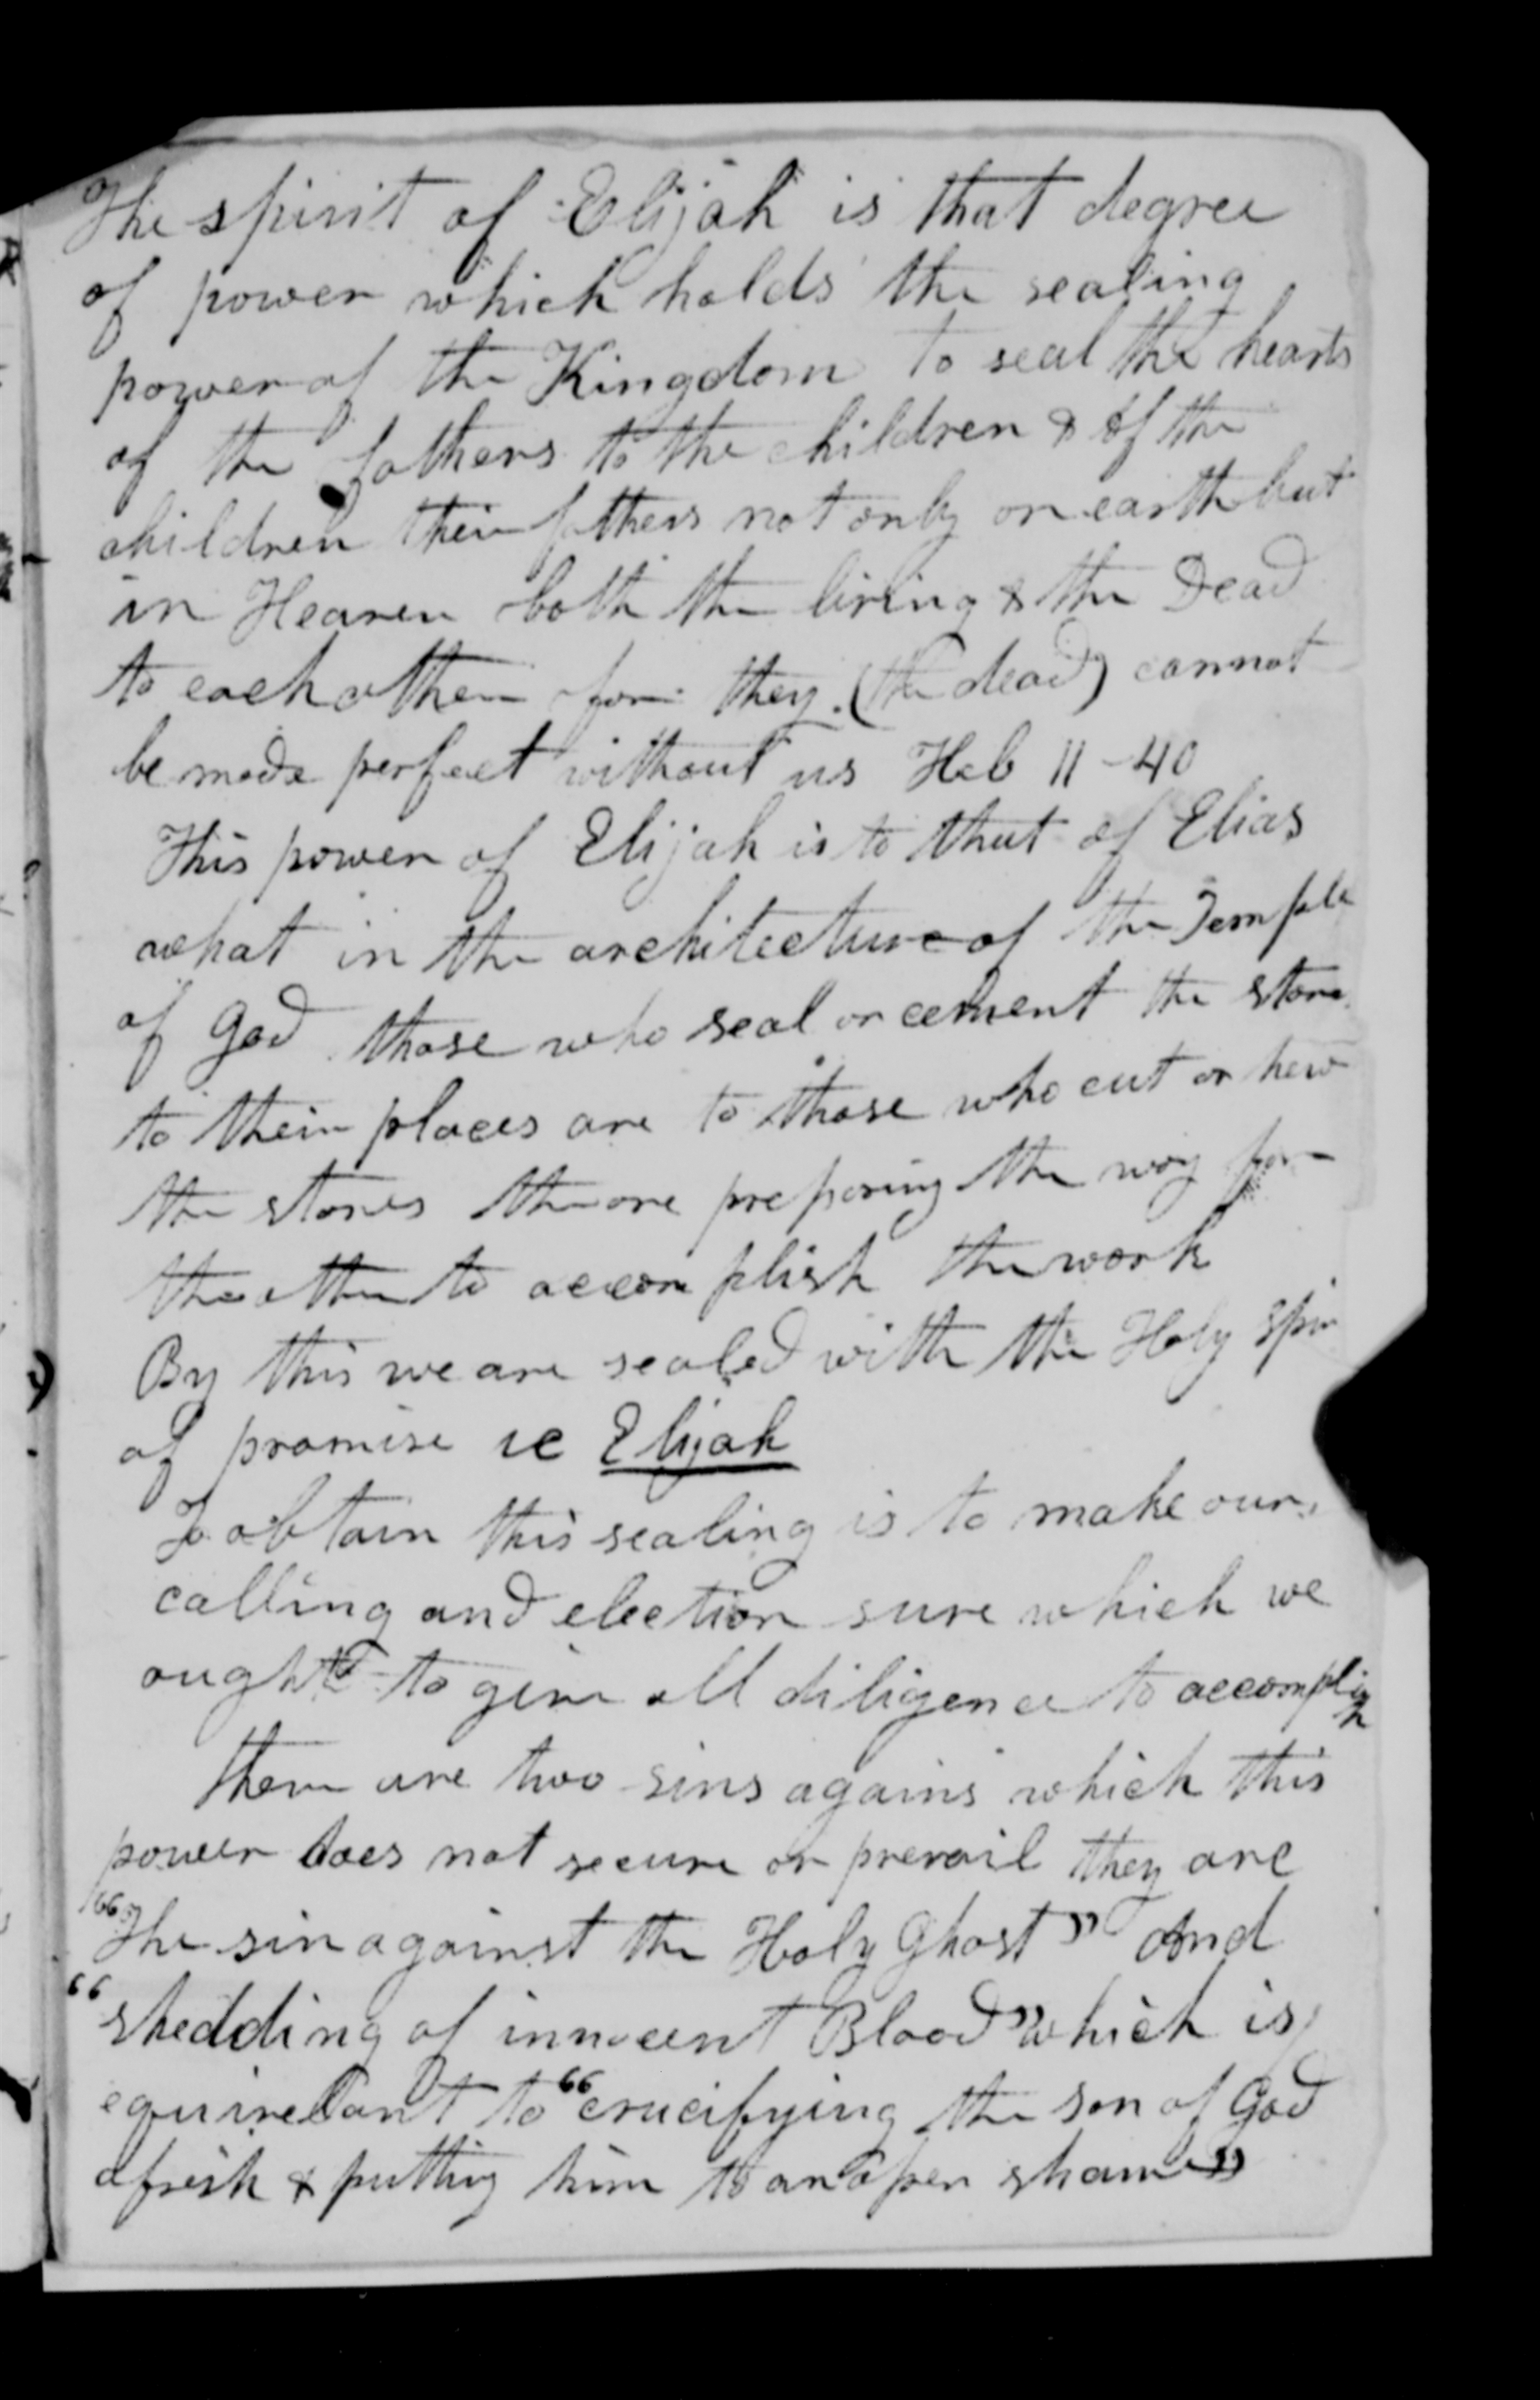 The spirit of Elijah is that degree
of power which holds the sealing
power of the Kingdom to seal the hearts
of the fathers to the children & of the
children their fathers not only on earth but
in Heaven both the living & the Dead
to each other for they (the dead) cannot
be made perfect without us Heb 11-40
This power of Elijah is to that of Elias
what in the architecture of the Temple
of God those who seal or cement the stone
to their places are to those who cut or hew
the stones the one preparing the way for
the other to accomplish the work
By this we are sealed with the Holy Spir
of promise ie Elijah
To obtain this sealing is to make our
calling and election sure which we
ought to give all diligence to accomplish
there are two sins agains which this
power does not secure or prevail they are
"The sin against the Holy Ghost" And
"shedding of innocent Blood" which is
equivelant to "crucifying the son of God
afresh & putting him to an open shame"